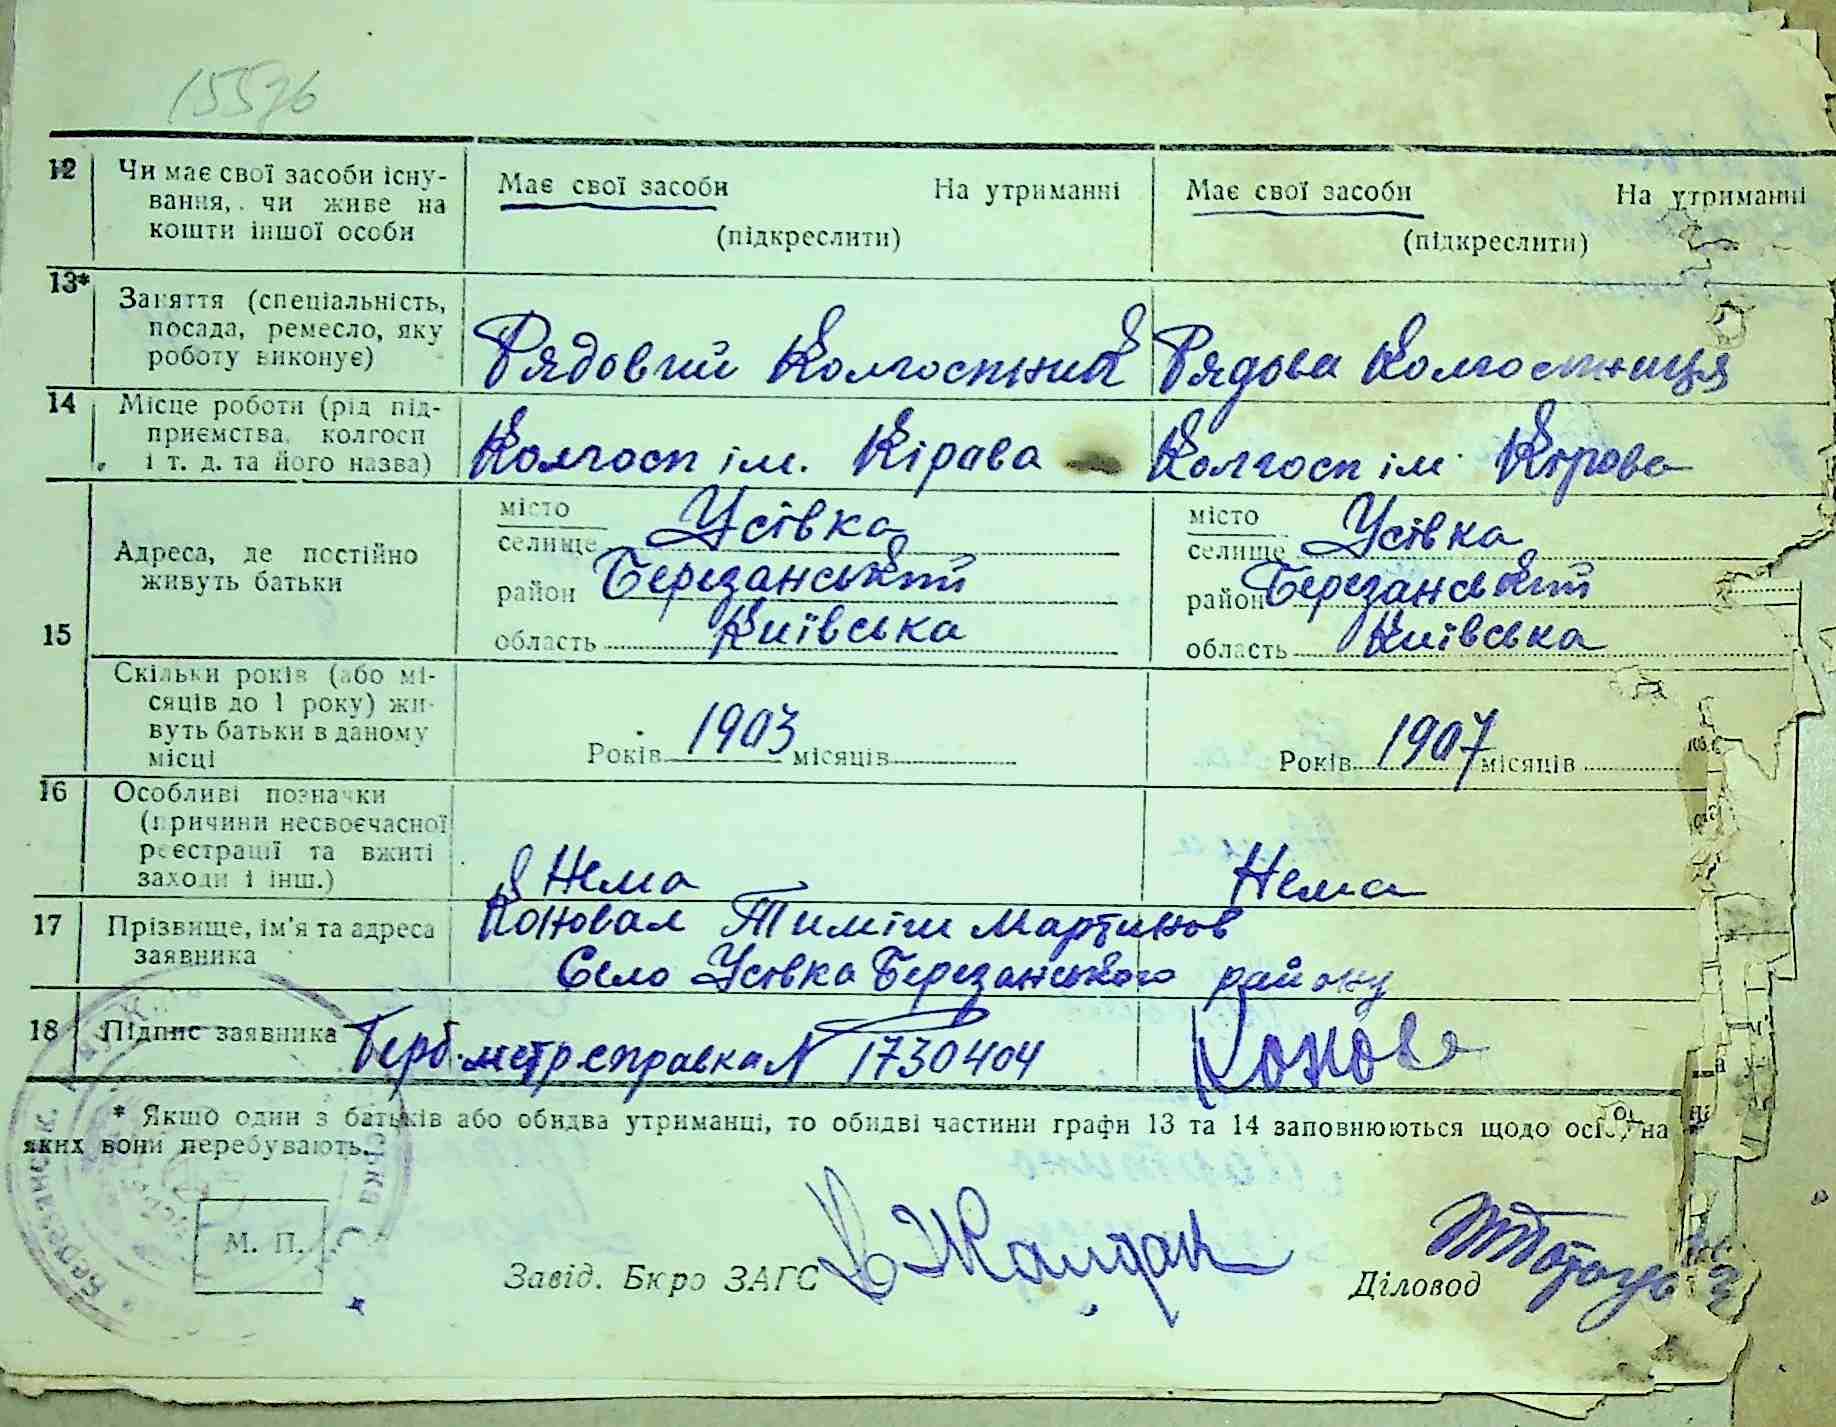 15576
12 Чи має свої засоби існу-
вання, чи живе на
кошти іншої особи
Має свої засоби На утриманні
(підкреслити)
Має свої засоби На утриманні
(підкреслити)
13* Заняття (спеціальність,
посада, ремесло, яку
роботу виконує)
Рядовий Колгоспник
Рядова Колгоспниця
14 Місце роботи (рід під-
приємства, колгосп
і т. д. та його назва)
Колгосп ім. Кірова
Колгосп ім. Кірова
15 Адреса, де постійно
живуть батьки
місто
селище Усівка
район Березанський
область Київська
місто
селище Усівка
район Березанський
область Київська
Скільки років (або мі-
сяців до 1 року) жи-
вуть батьки в даному
місці
Років 1903 місяців
Років 1907 місяців
16 Особливі позначки
(причини несвоєчасної
реєстрації та вжиті
заходи і інш.)
Нема
Нема
17 Прізвище, ім'я та адреса
заявника
Коновал Тиміш Мартинов
Село Усівка Березанського району
18 Підпис заявника
справка N 1730404
Конова
* Якщо один з батьків або обидва утриманці, то обидві частини графи 13 та 14 заповнюються щодо осіб, на
яких вони перебувають.
М. П.
Завід. Бюро ЗАГС
Діловод